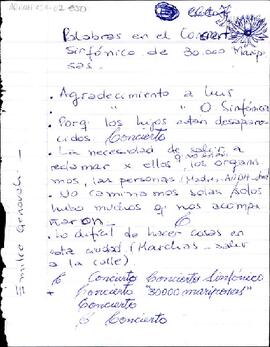 Palabras en el Concert
Sinfónico de 30.000 Maripo
sas.
. Agradecimiento a Luis
" " O Sinfónica
. Porq los hijos están desapare
cidos. Concierto
. La necesidad de salir a
reclamar x ellos, los organis
mos, las personas (Madres-APDH
. No caminamos solas solos
hubo muchos q nos acompa
ñaron
. Lo difícil de hacer cosas en
esta ciudad (Marchas - salir
a la calle)
Concierto Concierto Sinfónico
+ Concierto "30000 mariposas"
Concierto
Concierto